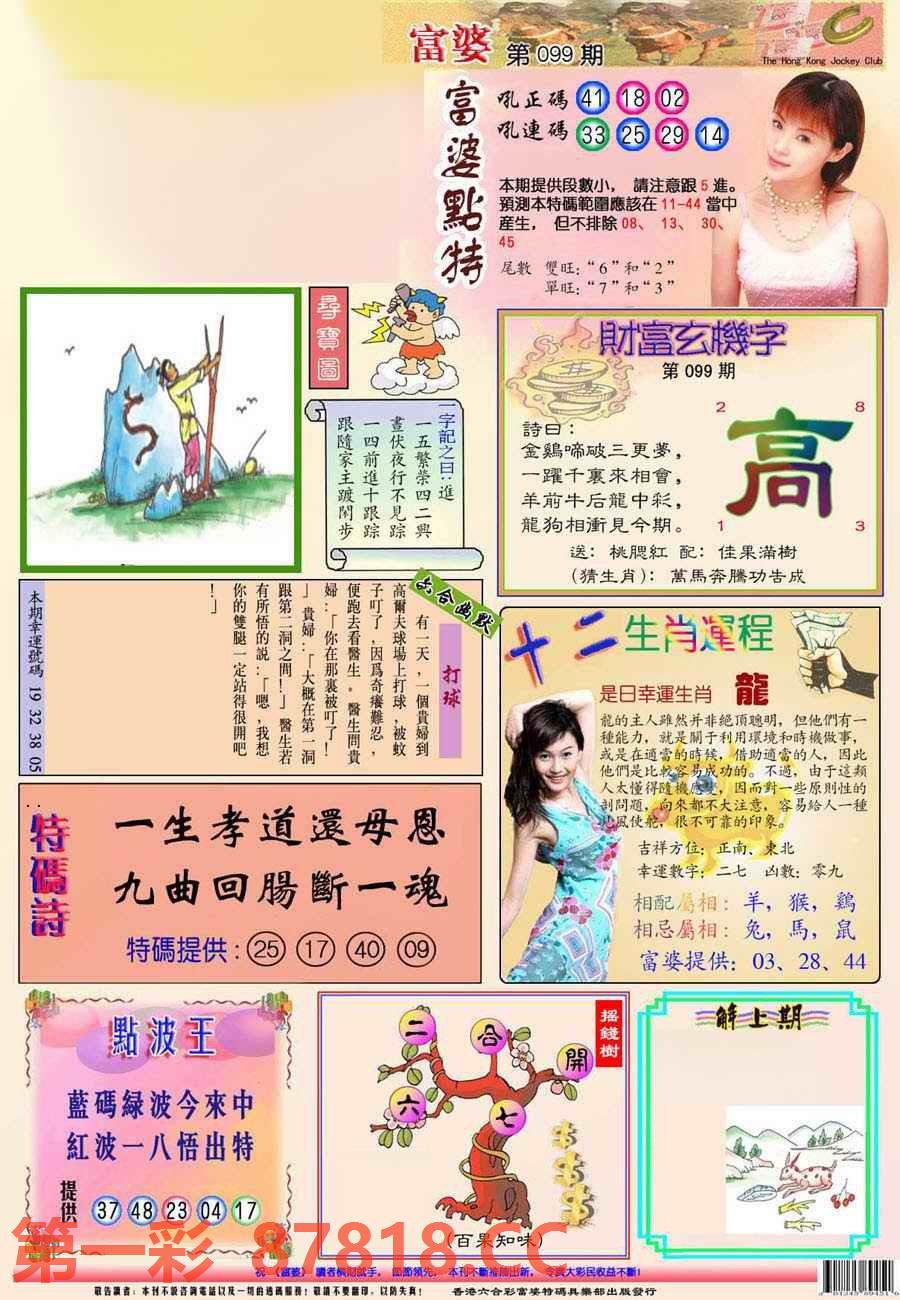 富婆 第 099 期
The Hong Kong Jockey Club
富婆點特
吼正碼 41 18 02
吼連碼 33 25 29 14
本期提供段數小， 請注意跟 5 進。
預測本特碼範圍應該在 11-44 當中
産生， 但不排除 08、 13、 30、
45
尾數 雙旺：“6”和“2”
單旺：“7”和“3”
尋寶圖
一字記之曰：進
一五繁榮四二興
晝伏夜行不見踪
一四前進十跟踪
跟隨家主踱鬧步
財富玄機字
第 099 期
2 8
高
1 3
詩曰：
金鷄啼破三更夢，
一躍千裏來相會，
羊前牛后龍中彩，
龍狗相衝見今期。
送：桃腮紅 配：佳果滿樹
(猜生肖)：萬馬奔騰功告成
六合幽默
打球
有一天，一個貴婦到
高爾夫球場上打球，被蚊
子叮了，因爲奇癢難忍，
便跑去看醫生。醫生問貴
婦：「你在那裏被叮了！
」貴婦：「大概在第一洞
跟第二洞之間！」醫生若
有所悟的説：「嗯，我想
你的雙腿一定站得很開吧
！」
本期幸運號碼 19 32 38 05
十二生肖運程
是日幸運生肖 龍
龍的主人雖然并非絕頂聰明，但他們有一
種能力，就是關于利用環境和時機做事，
或是在適當的時候，借助適當的人，因此
他們是比較容易成功的。不過，由于這類
人太懂得隨機應變，因而對一些原則性的
問題，向來都不大注意，容易給人一種
風使舵，很不可靠的印象。
吉祥方位：正南、東北
幸運數字：二七 凶數：零九
相配屬相：羊，猴，鷄
相忌屬相：兔，馬，鼠
富婆提供：03、28、44
特碼詩
一生孝道還母恩
九曲回腸斷一魂
特碼提供：25 17 40 09
點波王
藍碼緑波今來中
紅波一八悟出特
提供 37 48 23 04 17
摇錢樹
二 合 開
六 七
(百果知味)
解上期
第一彩 87818.CC
祝《富婆》讀者橫財就手， 節節領先， 本刊不斷推陳出新， 令廣大彩民收益不斷!
敬告讀者：本刊不設咨詢電話以及一切的透碼服務！敬請不要翻印，以防失真！
香港六合彩富婆特碼俱樂部出版發行